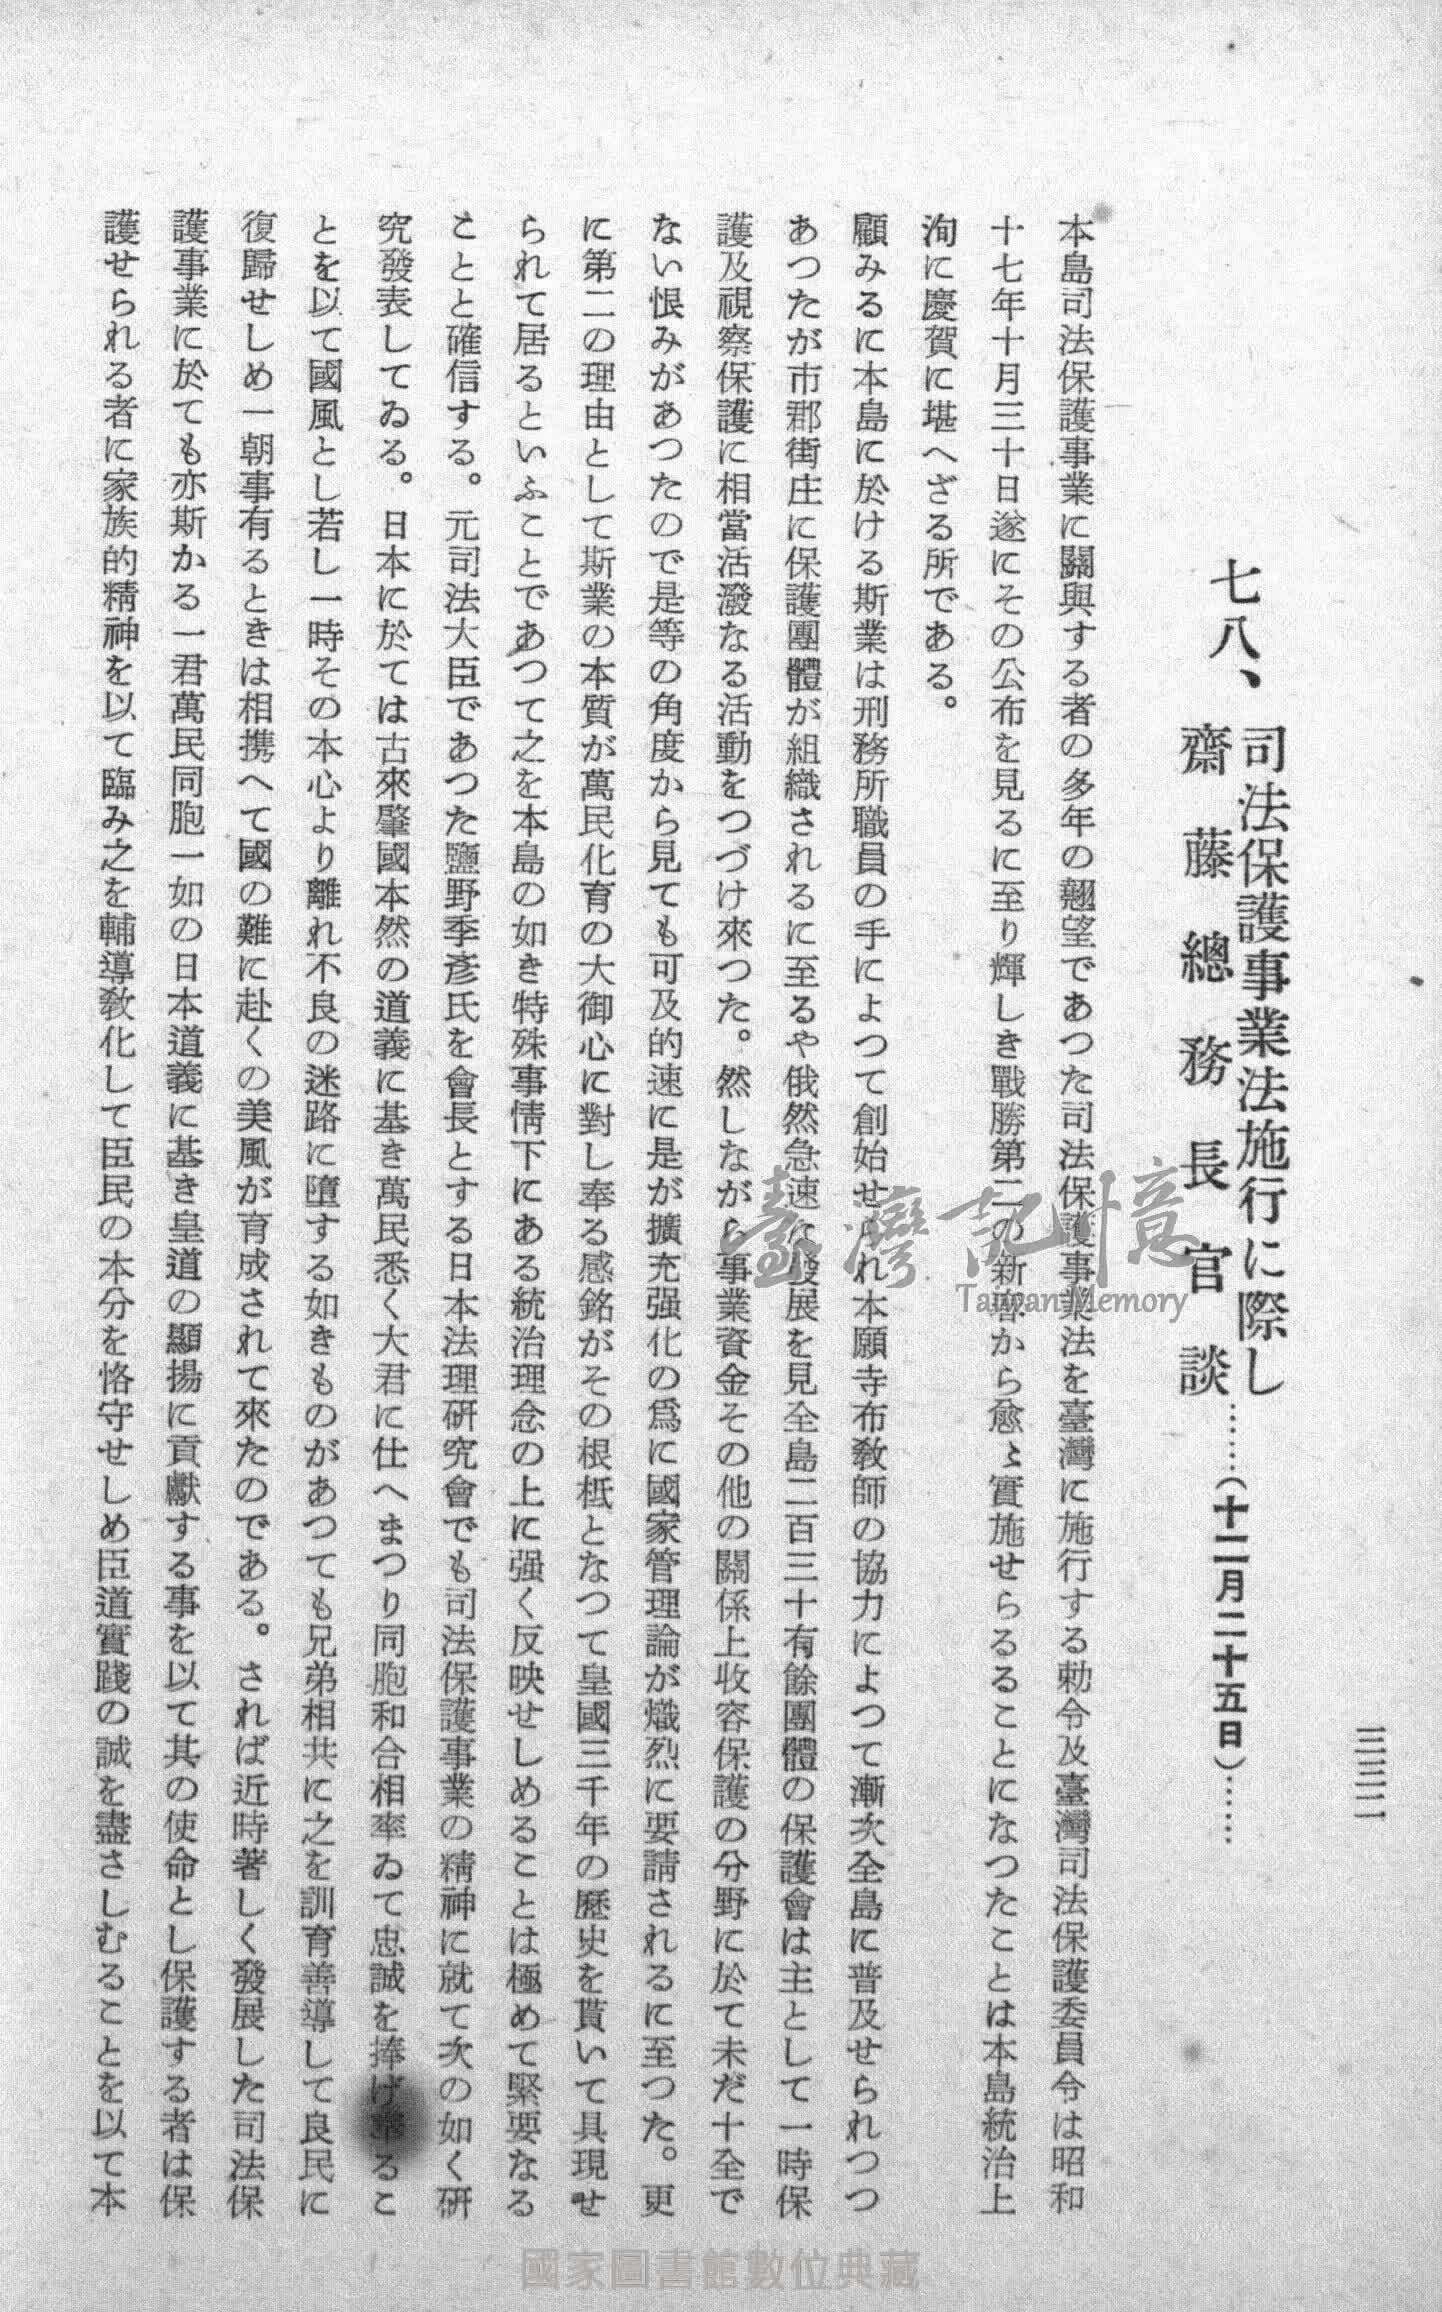 三三二
七八、司法保護事業法施行に際し
齋藤總務長官談
……(十二月二十五日)……
本島司法保護事業に關與する者の多年の翹望であつた司法保護事業法を臺灣に施行する勅令及臺灣司法保護委員令は昭和
十七年十月三十日遂にその公布を見るに至り輝しき戰勝第二の新春から愈〻實施せらるることになつたことは本島統治上
洵に慶賀に堪へざる所である。
顧みるに本島に於ける斯業は刑務所職員の手によつて創始せられ本願寺布教師の協力によつて漸次全島に普及せられつつ
あつたが市郡街庄に保護團體が組織されるに至るや俄然急速な發展を見全島二百三十有餘團體の保護會は主として一時保
護及視察保護に相當活潑なる活動をつづけ來つた。然しながら事業資金その他の關係上收容保護の分野に於て未だ十全で
ない恨みがあつたので是等の角度から見ても可及的速に是が擴充强化の爲に國家管理論が熾烈に要請されるに至つた。更
に第二の理由として斯業の本質が萬民化育の大御心に對し奉る感銘がその根柢となつて皇國三千年の歷史を貫いて具現せ
られて居るといふことであつて之を本島の如き特殊事情下にある統治理念の上に强く反映せしめることは極めて緊要なる
ことと確信する。元司法大臣であつた鹽野季彥氏を會長とする日本法理硏究會でも司法保護事業の精神に就て次の如く硏
究發表してゐる。日本に於ては古來肇國本然の道義に基き萬民悉く大君に仕へまつり同胞和合相率ゐて忠誠を捧げ奉るこ
とを以て國風とし若し一時その本心より離れ不良の迷路に墮する如きものがあつても兄弟相共に之を訓育善導して良民に
復歸せしめ一朝事有るときは相携へて國の難に赴くの美風が育成されて來たのである。されば近時著しく發展した司法保
護事業に於ても亦斯かる一君萬民同胞一如の日本道義に基き皇道の顯揚に貢獻する事を以て其の使命とし保護する者は保
護せられる者に家族的精神を以て臨み之を輔導敎化して臣民の本分を恪守せしめ臣道實踐の誠を盡さしむることを以て本
臺灣記憶
Taiwan Memory
國家圖書館數位典藏